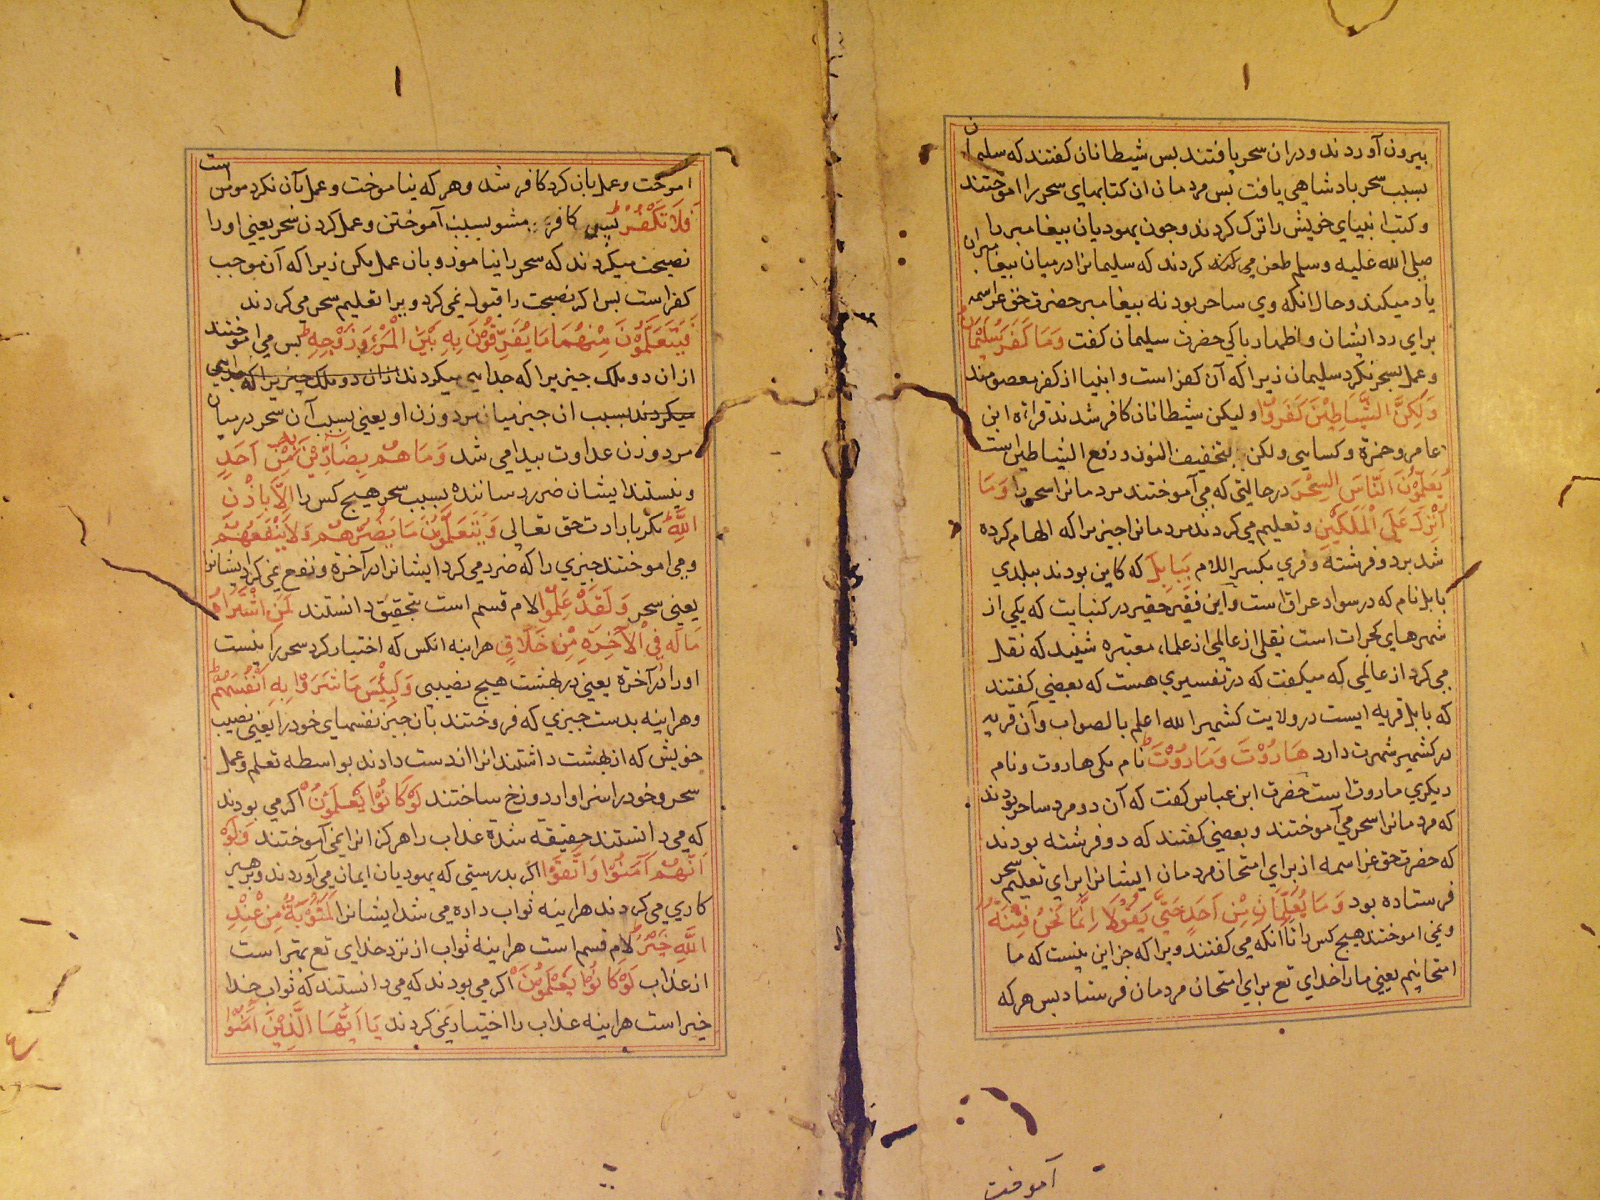 بیرون آوردند و دران سحر یافتند بس شیطانان کفتند که سلیمان
بسبب سحر بادشاهی یافت بس مردمان ان کتابهای سحر را اموختند
و کتب انبیای خویش را ترک کردند و جون یهودیان بیغامبر ما
صلی الله علیه و سلم طعن می کردند که سلیمانرا در میان بیغامبران
یاد میکند و حال انکه وی ساحر بود نه بیغامبر حضرت حق عز اسمه
برای رد ایشان و اظهار باکی حضرت سلیمان کفت وَمَا كَفَرَ سُلَيْمٰنُ
و عمل بسحر نکرد سلیمان زیرا که آن کفر است و انبیا از کفر معصومند
وَلٰكِنَّ الشَّيَاطِيْنَ كَفَرُوْا و لیکن شیطانان کافر شدند قراءه ابن
عامر و حمزة و کسایی ولکن بتخفیف النون و رفع الشیاطین است
يُعَلِّمُوْنَ النَّاسَ السِّحْرَ در حالتی که می آموختند مردمانرا سحر را وَمَا
اُنْزِلَ عَلَى الْمَلَكَيْنِ و تعلیم می کردند مردمانرا جیزیرا که الهام کرده
شد بر دو فرشته و قری بکسر اللام بِبَابِلَ که کاین بودند ببلدی
بابل نام که در سواد عراق است و این فقیر حقیر در کنبایت که یکی از
شهرهای کجرات است نقلی از عالمی از علماء معتبره شنید که نقل
می کرد از عالمی که میکفت که در تفسیری هست که بعضی کفتند
که بابل قریه ایست در ولایت کشمیر الله اعلم بالصواب و آن قریه
در کشمیر شهرت دارد هَارُوْتَ وَمَارُوْتَ نام یکی هاروت و نام
دیکری ماروت است حضرت ابن عباس کفت که آن دو مرد ساحر بودند
که مردمانرا سحر می آموختند و بعضی کفتند که دو فرشته بودند
که حضرت حق عز اسمه از برای امتحان مردمان ایشانرا برای تعلیم سحر
فرستاده بود وَمَا يُعَلِّمَانِ مِنْ اَحَدٍ حَتّٰى يَقُوْلَا اِنَّمَا نَحْنُ فِتْنَةٌ
و نمی اموختند هیج کس را تا انکه می کفتند ویرا که جز این نیست که ما
امتحانیم یعنی ما را خدای تع برای امتحان مردمان فرستاد بس هر که
آموخت
اموخت و عمل بان کرد کافر شد و هر که نیاموخت و عمل بآن نکرد مومن است
فَلَا تَكْفُرْ بس کافر مشو بسبب آموختن و عمل کردن سحر یعنی او را
نصیحت میکردند که سحر را نیاموز و بان عمل مکن زیرا که آن موجب
کفر است بس اکر نصیحت را قبول نمی کرد ویرا تعلیم سحر می کردند
فَيَتَعَلَّمُوْنَ مِنْهُمَا مَا يُفَرِّقُوْنَ بِهٖ بَيْنَ الْمَرْءِ وَزَوْجِهٖ بس می اموختند
از ان دو ملک جیزیرا که جدایی میکردند ازان دو ملک جیزیرا که جدایی
میکردند بسبب ان جیز میان مرد و زن او یعنی بسبب آن سحر در میان
مرد و زن عداوت بیدا می شد وَمَا هُمْ بِضَارِّيْنَ بِهٖ مِنْ اَحَدٍ
و نیستند ایشان ضرر رساننده بسبب سحر هیج کس را اِلَّا بِاِذْنِ
اللهِ مکر بارادت حق تعالی وَيَتَعَلَّمُوْنَ مَا يَضُرُّهُمْ وَلَا يَنْفَعُهُمْ
و می اموختند جیزی را که ضرر می کرد ایشانرا در آخرة و نفع نمی کرد ایشانرا
یعنی سحر وَلَقَدْ عَلِمُوْا لام قسم است بتحقیق دانستند لَمَنِ اشْتَرٰاهُ
مَالَهٗ فِى الْآخِرَةِ مِنْ خَلَاقٍ هراینه انکس که اختیار کرد سحر را نیست
او را در آخرة یعنی در بهشت هیج نصیبی وَلَبِئْسَ مَا شَرَوْا بِهٖ اَنْفُسَهُمْ
و هراینه بدست جیزی که فروختند بآن جیز نفسهای خود را یعنی نصیب
خویش که از بهشت داشتند انرا از دست دادند بواسطه تعلم و عمل
سحر و خود را سزاوار دوزخ ساختند لَوْ كَانُوْا يَعْلَمُوْنَ اکر می بودند
که می دانستند حقیقه شدة عذاب را هرکز انرا نمی آموختند وَلَوْ
اَنَّهُمْ اٰمَنُوْا وَاتَّقَوْا اکر بدرستی که یهودیان ایمان می آوردند و برهیز
کاری می کردند هراینه ثواب داده می شد ایشانرا لَمَثُوْبَةٌ مِنْ عِنْدِ
اللهِ خَيْرٌ لام قسم است هراینه ثواب از نزد خدای تع بهتر است
از عذاب لَوْ كَانُوْا يَعْلَمُوْنَ اکر می بودند که می دانستند که ثواب خدا
خیر است هراینه عذاب را اختیار نمی کردند يَا اَيُّهَا الَّذِيْنَ اٰمَنُوْا